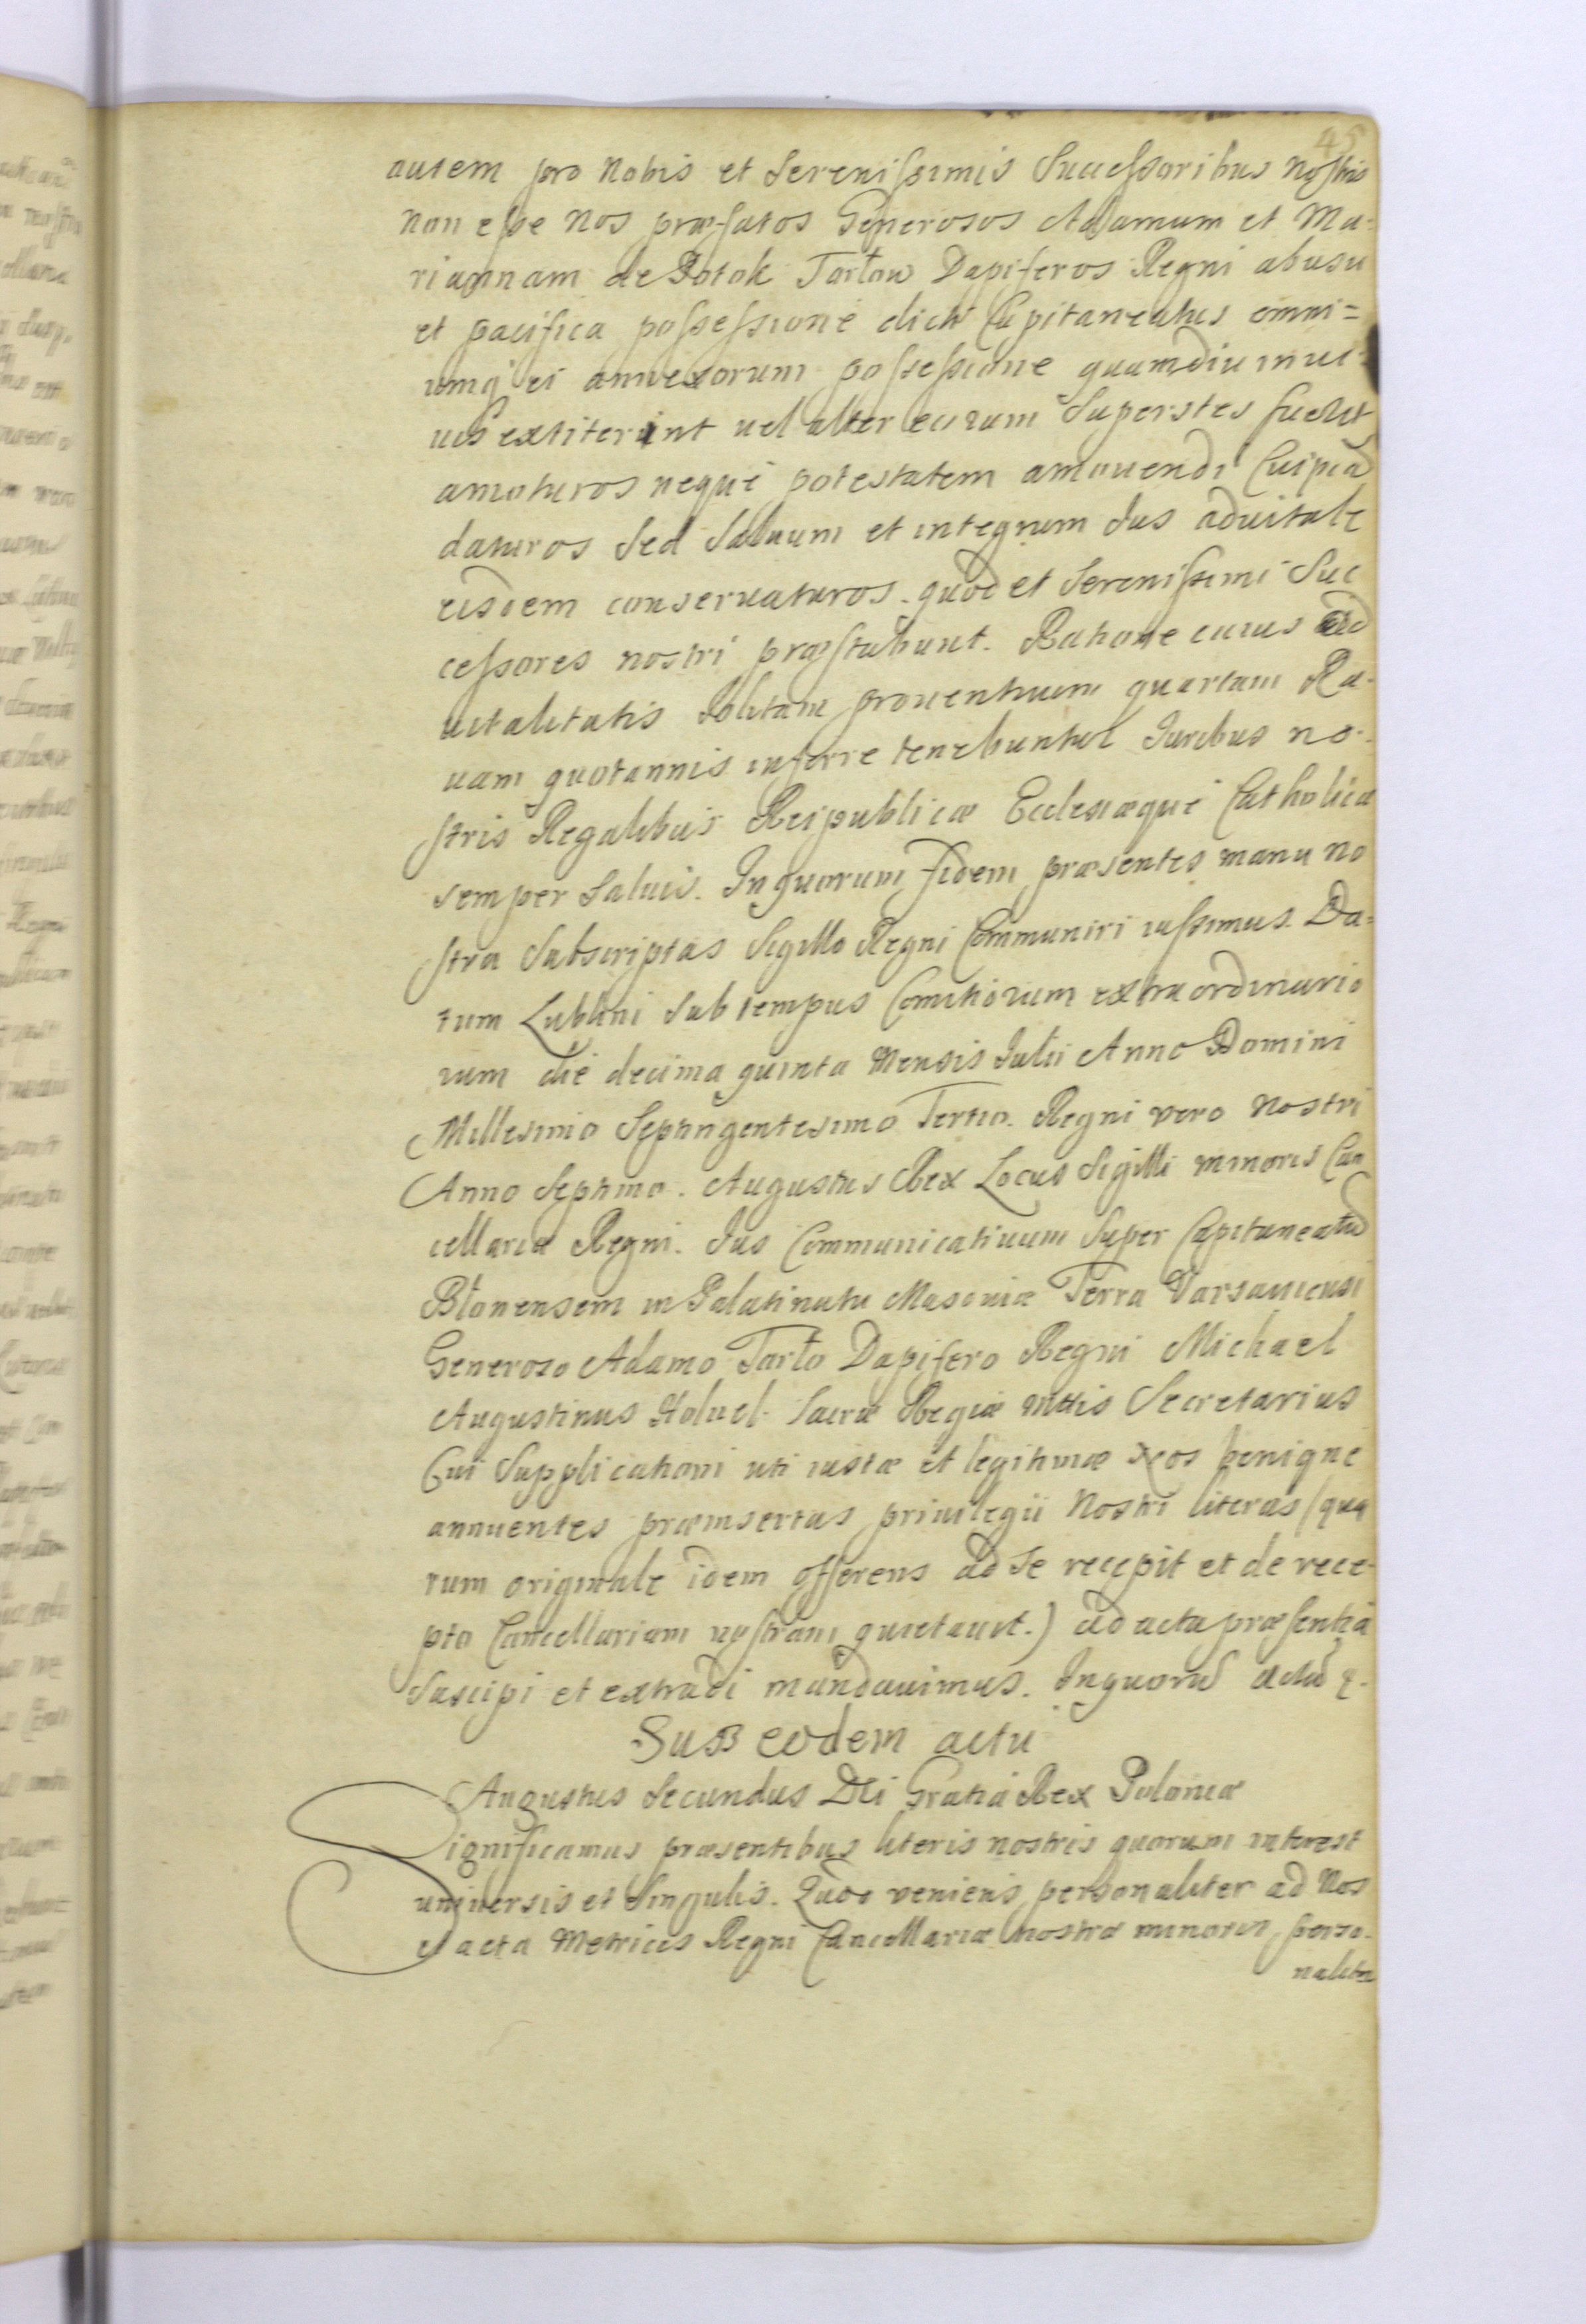 45
autem pro Nobis et Serenissimis Successoribus nostris
non esse Nos præfatos Generosos Adamum et Ma-
riannam de Potok Tarłow Dapiferos Regni ab usu
et pacifica possessione dicti Capitaneatus omni=
umq ei annexorum possessione quamdiu in vi-
vis extiterint vel alter eorum Superstes fuerit
amoturos neque potestatem amouendi Cuipiã
daturos Sed Saluum et integrum Jus aduitale
eisdem conseruaturos. quod et Serenissimi Suc
cessores nostri præstabunt. Ratione cuius ad
uitalitatis Solitam prouentuum quartam Ra-
uam quotannis inferre tenebuntur Juribus no-
stris Regalibus Reipublicæ Ecclesiæque Catholicæ
semper Saluis. In quorum fidem præsentes manu no
stra Subscriptas Sigillo Regni Communiri iussimus. Da=
tum Lublini Sub tempus Comitiorum extraordinario
rum die decima quinta Mensis Julii Anno Domini
Millesimo Septingentesimo Tertio. Regni vero Nostri
Anno Septimo. Augustus Rex Locus Sigilli minoris Can
cellariæ Regni. Jus Communicatiuum Super Capitaneatũ
Błonensem in Palatinatu Masouiæ Terra Varsauiensi
Generoso Adamo Tarło Dapifero Regni Michael
Augustinus Holuel Sacræ Regiæ Mttis Secretarius
Cui Supplicationi uti iustæ et legitimæ Nos benigne
annuentes præinsertas priuilegii Nostri literas (qua
rum originale idem offerens ad Se recepit et de rece-
pto Cancellariam nostram quietauit.) ad acta præsentia
Suscipi et extradi mandauimus. In quorũ
Sub eodem actu
Augustus Secundus Dei Gratia Rex Poloniæ
Significamus præsentibus literis nostris quorum interest
uniuersis et Singulis. Quod veniens personaliter ad Nos
et acta Metrices Regni Cancellariæ nostræ minoris perso-
naliter